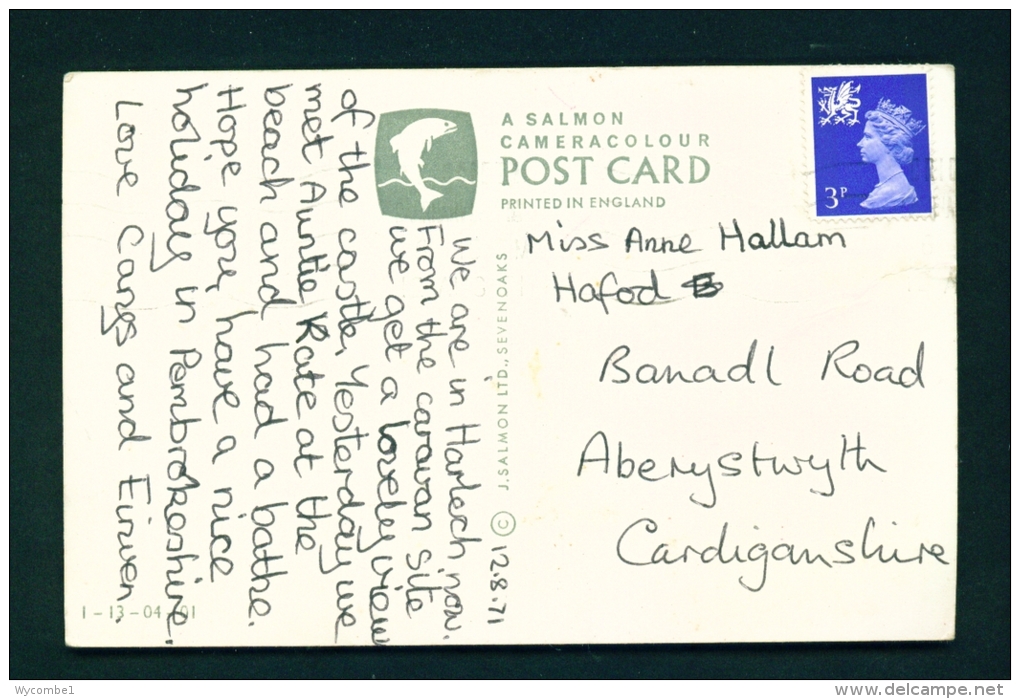 A SALMON
CAMERACOLOUR
POST CARD
PRINTED IN ENGLAND
3P
Miss Anne Hallam
Hafod
Banadl Road
Aberystwyth
Cardiganshire
J. SALMON LTD., SEVENOAKS ©
12.8.71
We are in Harlech now.
From the caravan site
we get a lovely view
of the castle, Yesterday we
met Auntie Kate at the
beach and had a bathe.
Hope you have a nice
holiday in Pembrokeshire.
Love Carys and Eirwen.
1-13-04-01
Wycombe1
www.delcampe.net